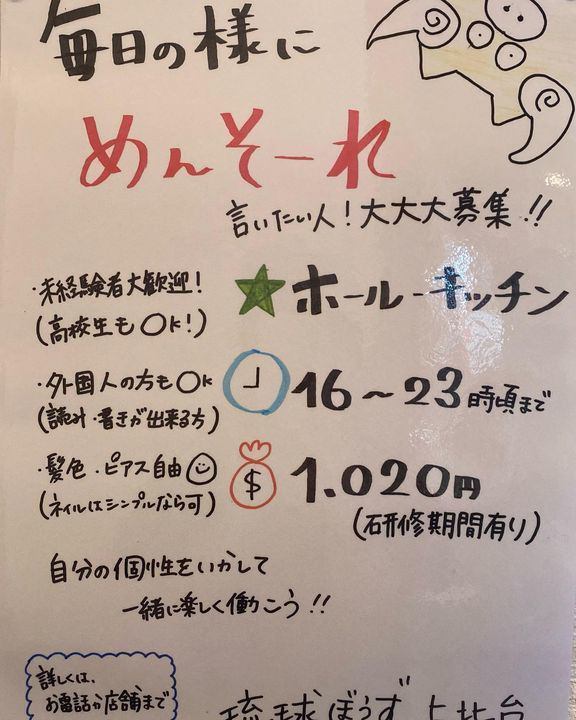 毎日の様に
めんそーれ
言いたい人！大大大募集!!
・未経験者大歓迎！
(高校生もOK！)
★ホール・キッチン
・外国人の方もOK
(読み・書きが出来る方)
16～23時頃まで
・髪色・ピアス自由
(ネイルはシンプルなら可)
$ 1.020円
(研修期間有り)
自分の個性をいかして
一緒に楽しく働こう!!
詳しくは、
お電話か店舗まで
琉球ぼうず